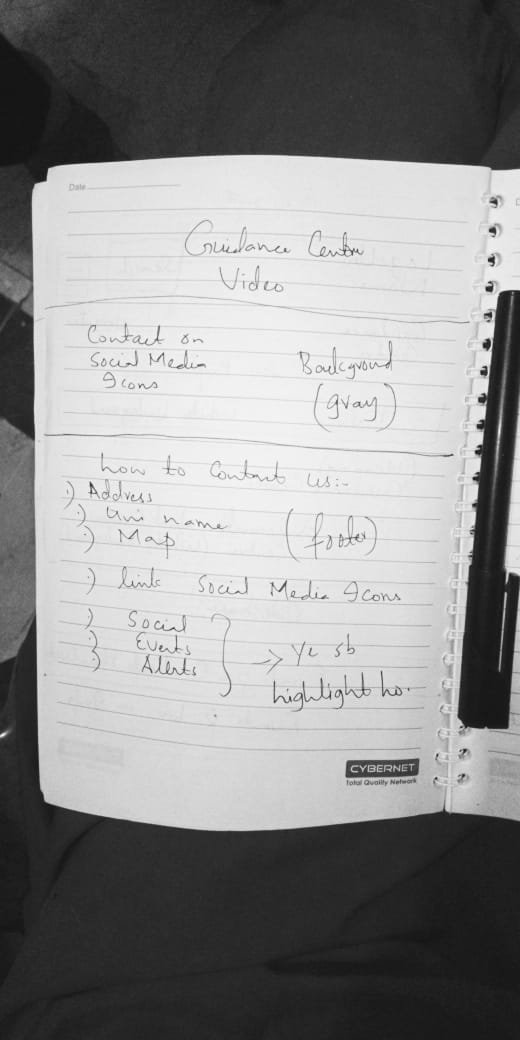 Date
Guidance Centre
Video
Contact on
Social Media
Icons
Background
(gray)
how to Contact us:-
:) Address
:) Uni name
:) Map
(footer)
:) link Social Media Icons
:) Social
:) Events
:) Alerts
→ Ye sb
highlight ho.
CYBERNET
Total Quality Network